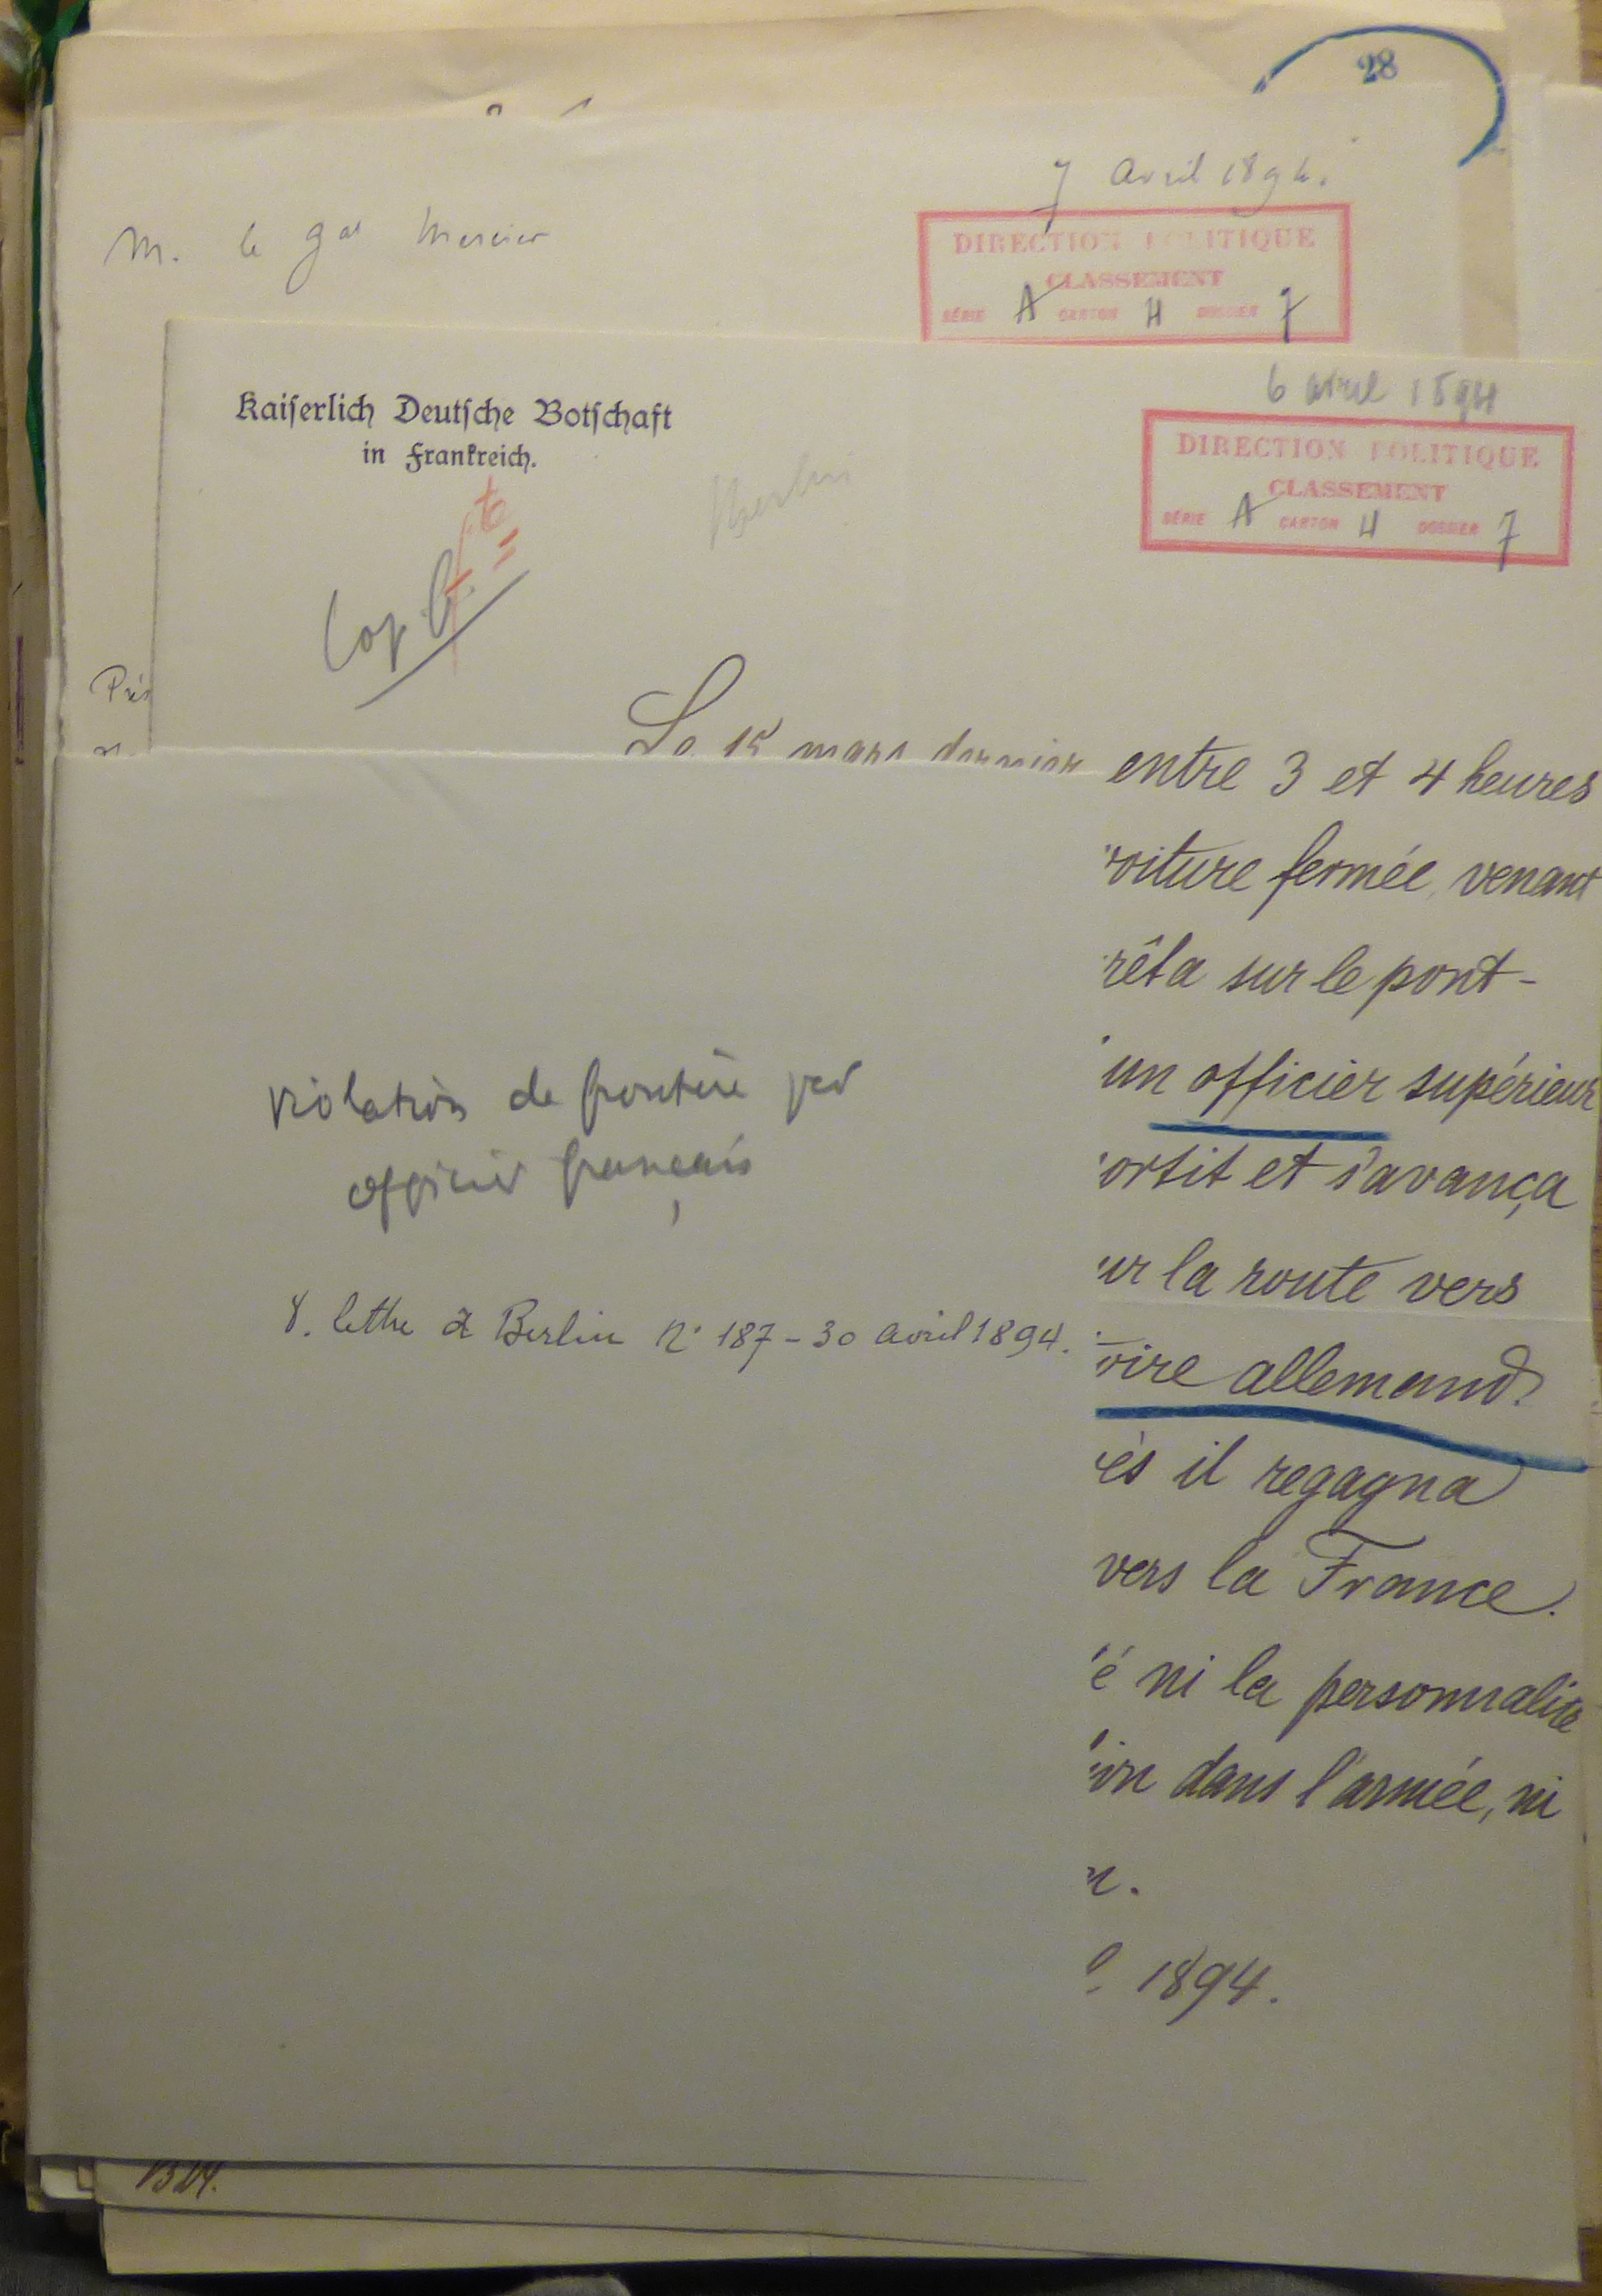 28
7 avril 1894.
M. le gal Mercier
DIRECTION POLITIQUE
CLASSEMENT
SÉRIE A CARTON H DOSSIER 7
6 avril 1894
Kaiserlich Deutsche Botschaft
in Frankreich.
DIRECTION POLITIQUE
CLASSEMENT
SÉRIE A CARTON H DOSSIER 7
Berlin
Cop. B.
Prés
Le 15 mars dernier entre 3 et 4 heures
voiture fermée, venant
rêta sur le pont-
un officier supérieur
violation de frontière par
officier français
ortit et s'avança
ur la route vers
V. lettre à Berlin n° 187 - 30 avril 1894.
oire allemand.
ès il regagna
vers la France.
é ni la personnalité
ion dans l'armée, ni
n.
1894.